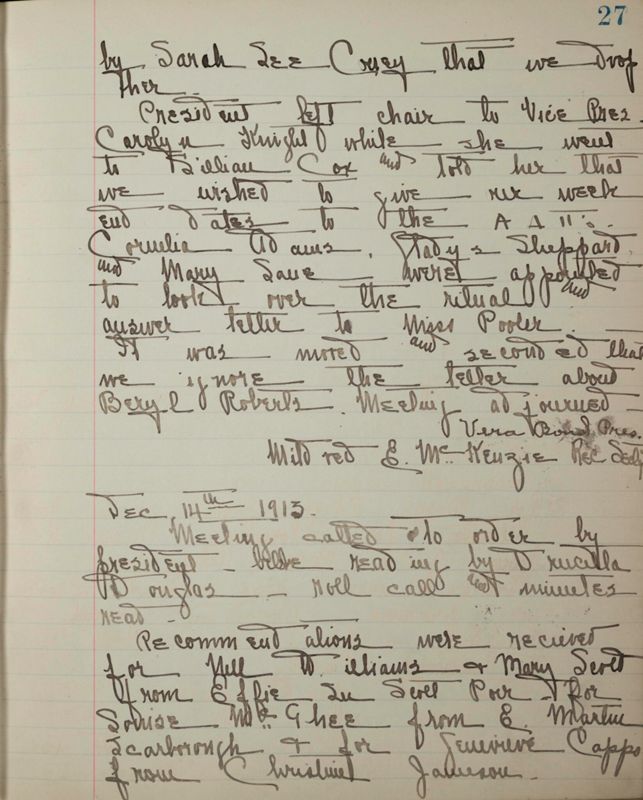 27
by Sarah See Cresey that we drop
ther.
President left chair to Vice Pres.
Carolyn Knight while she went
to Lillian Cox and told her that
we wished to give her week
end dates to the
Cornelia Adams, Gladys Sheppard
and Mary Lane were appointed
to look over the ritual and
answer letter to Miss Pooler.
It was moved and seconded that
we ignore the letter about
Beryl Roberts. Meeting adjourned
Vera Bond, Pres.
Mildred E. McKenzie Rec. Sec'y
Dec. 14th 1913.
Meeting called to order by
president – bible reading by Drucilla
Douglas – roll call and minutes
read –
Recommendations were recieved
for Nell Williams & Mary Scott
from Effie Lu Scott Poir & for
Louise McGhee from E. Martin
Scarborough & for Genevieve Capps
from Christine Jameson.